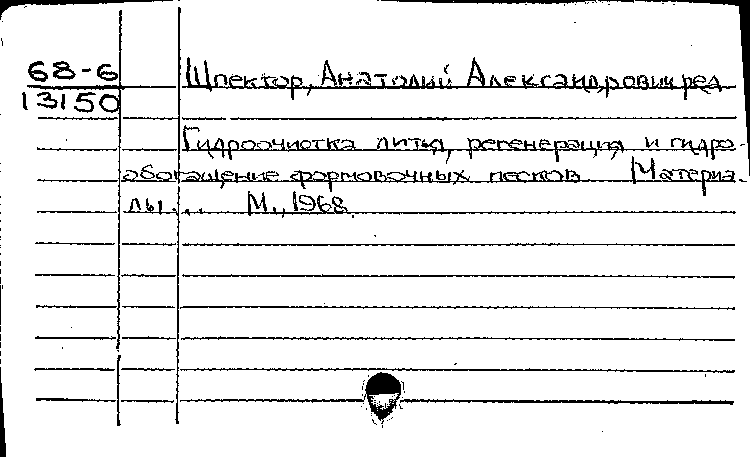 68-6
13150
Шпектор, Анатолий Александрович ред.
Гидроочистка литья, регенерация и гидро-
обогащение формовочных песков. Материа-
лы... М., 1968.